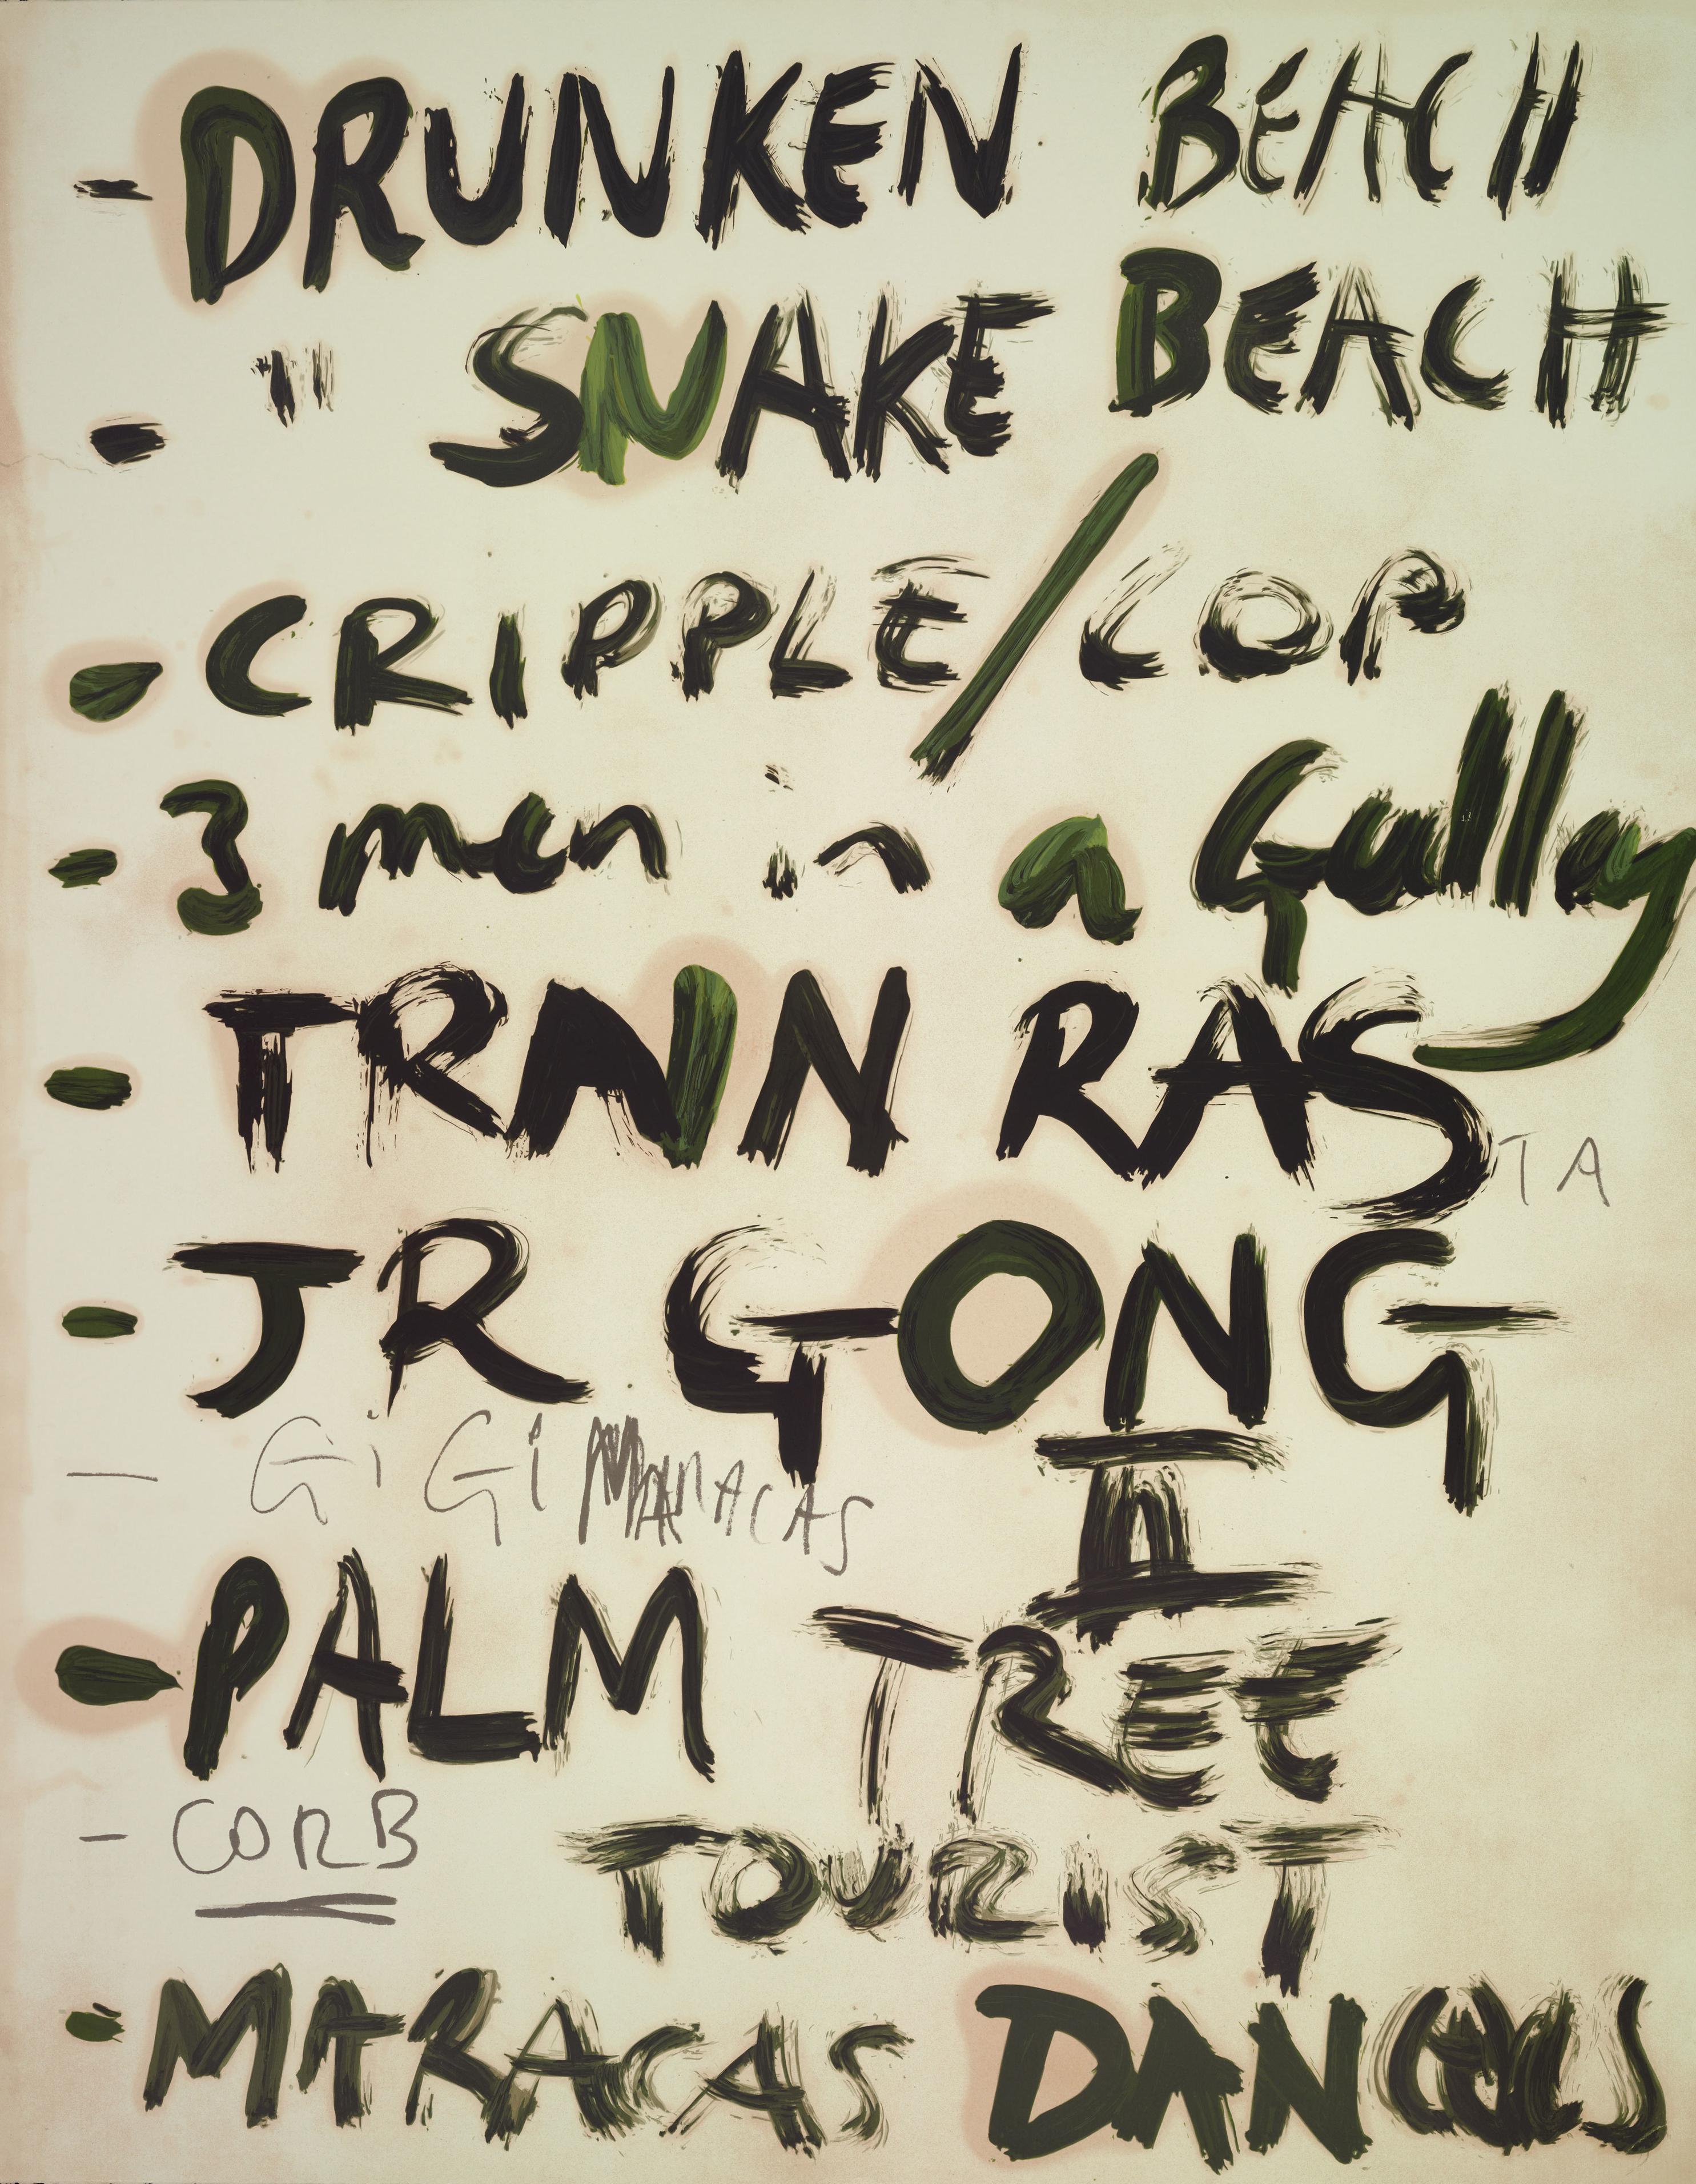 - DRUNKEN BEACH
- " SNAKE BEACH
- CRIPPLE/COP
- 3 men in a Gully
- TRAIN RASTA
- JR GONG II
- GiGi MARACAS
- PALM TREE
- CORB TOURIST
- MARACAS